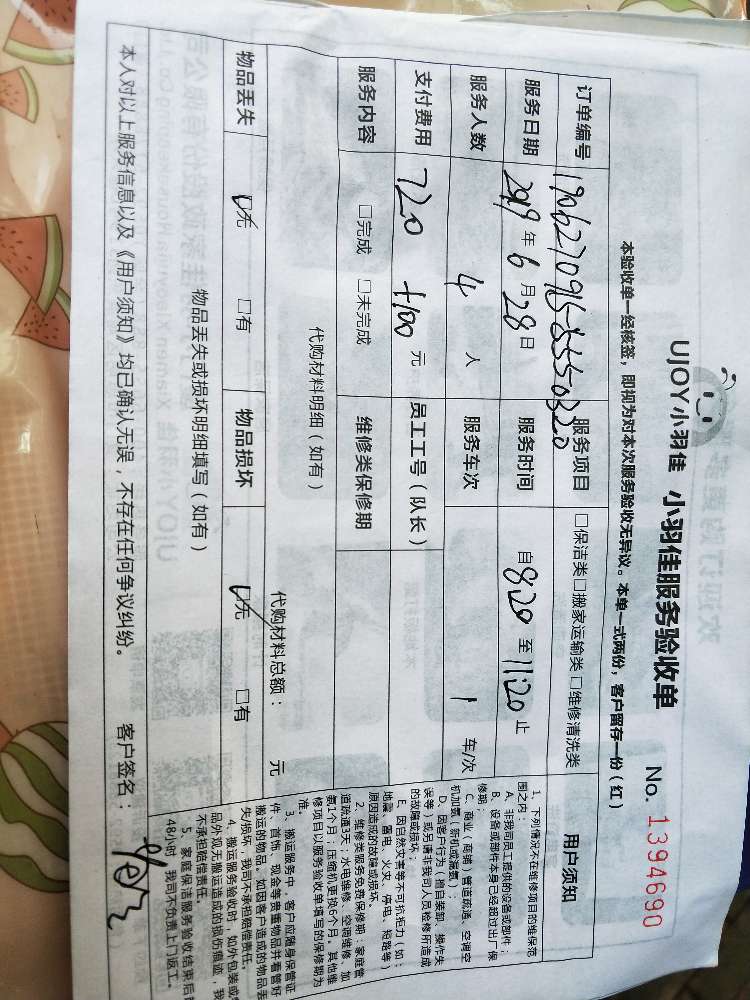 UJOY小羽佳 小羽佳服务验收单
No. 1394690
本验收单一经核签，即视为对本次服务验收无异议。本单一式两份，客户留存一份（红）
订单编号 服务项目 □保洁类□搬家运输类□维修清洗类
服务日期 2019年6月28日 服务时间 自8:20至11:20止
服务人数 4人 服务车次 1车/次
支付费用 720 +100元 员工工号（队长）
服务内容 □完成 □未完成 维修类保修期
代购材料明细（如有） 代购材料总额： 元
物品丢失 □无 □有 物品损坏 □无 □有
物品丢失或损坏明细填写（如有）
本人对以上服务信息以及《用户须知》均已确认无误，不存在任何争议纠纷。 客户签名：
用户须知
1、下列情况不在维修项目的维保范
围之内：
A、非我司员工提供的设备或部件；
B、设备或部件本身已经超过出厂保
修期；
C、商业（商铺）管道疏通、空调空
机加氨（新机或漏氨）；
D、因客户行为（擅自装卸、操作失
误等）或另请非我司人员检修所造成
的故障或损坏；
E、因自然灾害等不可抗拒力（如：
地震、雷电、火灾、停电、短路等）
原因造成的故障或损坏。
2、维修类服务免费保修期：家庭管
道疏通3天；水电维修、空调维修、加
氨1个月；压缩机更换6个月。其他维
修项目以服务验收单填写的保修期为
准。
3、搬运服务中，客户应随身保管证
件、首饰、现金等贵重物品并看管好
搬运的物品。如因客户造成的物品丢
失/损坏，我司不承担赔偿责任。
4、搬运服务验收时，如外包装或
品外观无搬运造成的损伤痕迹，我
不承担赔偿责任。
5、家庭保洁服务验收结束后
48小时，我司不负责上门返工。